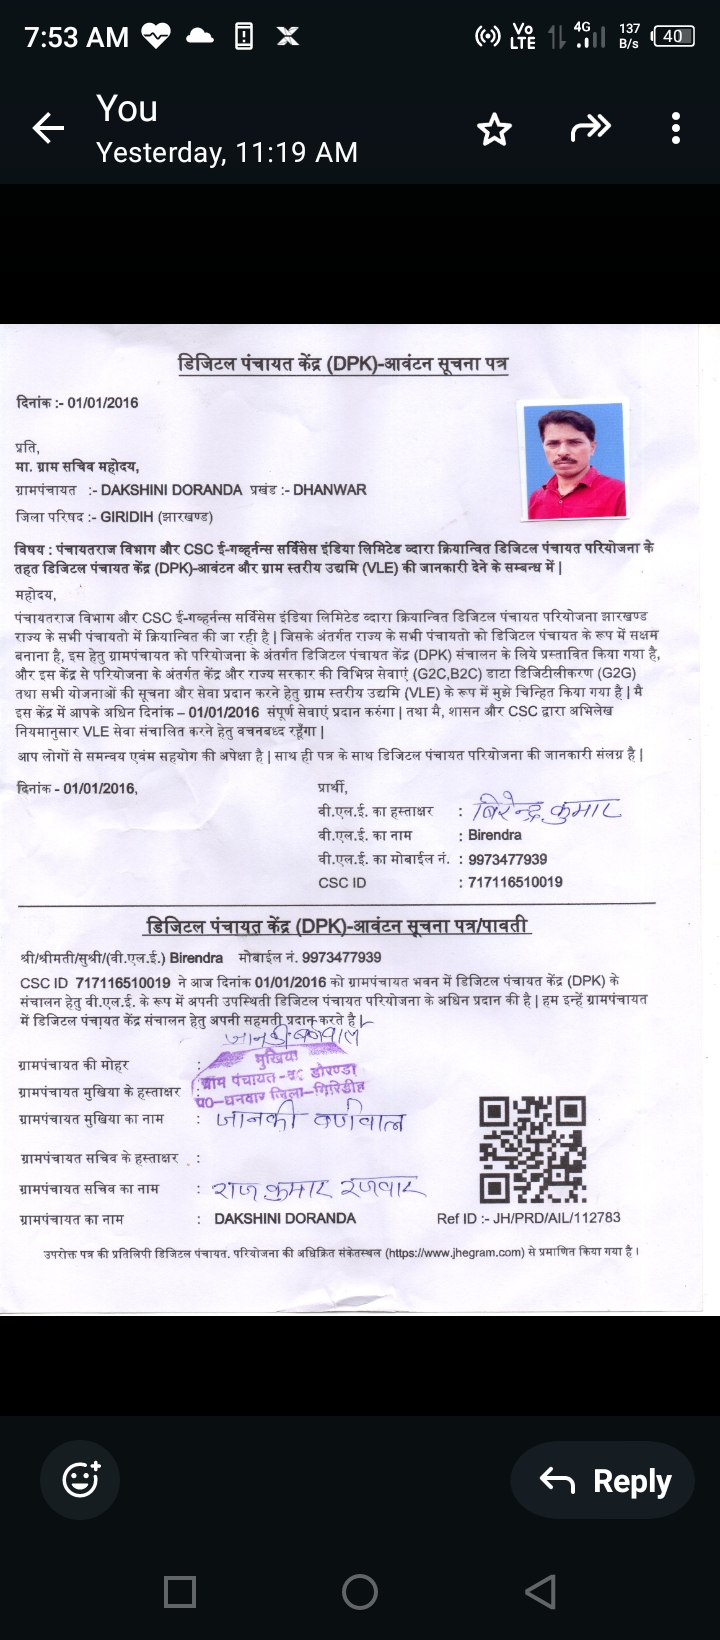 7:53 AM
Vo LTE 4G 137 B/s 40
You
Yesterday, 11:19 AM
डिजिटल पंचायत केंद्र (DPK)-आवंटन सूचना पत्र
दिनांक :- 01/01/2016
प्रति,
मा. ग्राम सचिव महोदय,
ग्रामपंचायत :- DAKSHINI DORANDA प्रखंड :- DHANWAR
जिला परिषद :- GIRIDIH (झारखण्ड)
विषय : पंचायतराज विभाग और CSC ई-गव्हर्नन्स सर्विसेस इंडिया लिमिटेड व्दारा क्रियान्वित डिजिटल पंचायत परियोजना के
तहत डिजिटल पंचायत केंद्र (DPK)-आवंटन और ग्राम स्तरीय उद्यमि (VLE) की जानकारी देने के सम्बन्ध में |
महोदय,
पंचायतराज विभाग और CSC ई-गव्हर्नन्स सर्विसेस इंडिया लिमिटेड व्दारा क्रियान्वित डिजिटल पंचायत परियोजना झारखण्ड
राज्य के सभी पंचायतो में क्रियान्वित की जा रही है | जिसके अंतर्गत राज्य के सभी पंचायतो को डिजिटल पंचायत के रूप में सक्षम
बनाना है, इस हेतु ग्रामपंचायत को परियोजना के अंतर्गत डिजिटल पंचायत केंद्र (DPK) संचालन के लिये प्रस्तावित किया गया है,
और इस केंद्र से परियोजना के अंतर्गत केंद्र और राज्य सरकार की विभिन्न सेवाएं (G2C,B2C) डाटा डिजिटीलीकरण (G2G)
तथा सभी योजनाओं की सूचना और सेवा प्रदान करने हेतु ग्राम स्तरीय उद्यमि (VLE) के रूप में मुझे चिन्हित किया गया है | मै
इस केंद्र में आपके अधिन दिनांक – 01/01/2016 संपूर्ण सेवाएं प्रदान करुंगा | तथा मै, शासन और CSC द्वारा अभिलेख
नियमानुसार VLE सेवा संचालित करने हेतु वचनबध्द रहूँगा |
आप लोगों से समन्वय एवंम सहयोग की अपेक्षा है | साथ ही पत्र के साथ डिजिटल पंचायत परियोजना की जानकारी संलग्न है |
दिनांक - 01/01/2016,
प्रार्थी,
वी.एल.ई. का हस्ताक्षर : बिरेन्द्र कुमार
वी.एल.ई. का नाम : Birendra
वी.एल.ई. का मोबाईल नं. : 9973477939
CSC ID : 717116510019
डिजिटल पंचायत केंद्र (DPK)-आवंटन सूचना पत्र/पावती
श्री/श्रीमती/सुश्री/(वी.एल.ई.) Birendra मोबाईल नं. 9973477939
CSC ID 717116510019 ने आज दिनांक 01/01/2016 को ग्रामपंचायत भवन में डिजिटल पंचायत केंद्र (DPK) के
संचालन हेतु वी.एल.ई. के रूप में अपनी उपस्थिती डिजिटल पंचायत परियोजना के अधिन प्रदान की है | हम इन्हें ग्रामपंचायत
में डिजिटल पंचायत केंद्र संचालन हेतु अपनी सहमती प्रदान करते है |
ग्रामपंचायत की मोहर :
मुखिया
ग्राम पंचायत-द० डोरण्डा
प०-धनवार जिला-गिरिडीह
ग्रामपंचायत मुखिया के हस्ताक्षर :
ग्रामपंचायत मुखिया का नाम : जानकी वर्णवाल
ग्रामपंचायत सचिव के हस्ताक्षर :
ग्रामपंचायत सचिव का नाम : राज कुमार रजवार
ग्रामपंचायत का नाम : DAKSHINI DORANDA
Ref ID :- JH/PRD/AIL/112783
उपरोक्त पत्र की प्रतिलिपी डिजिटल पंचायत. परियोजना की अधिक्रित संकेतस्थल (https://www.jhegram.com) से प्रमाणित किया गया है ।
Reply